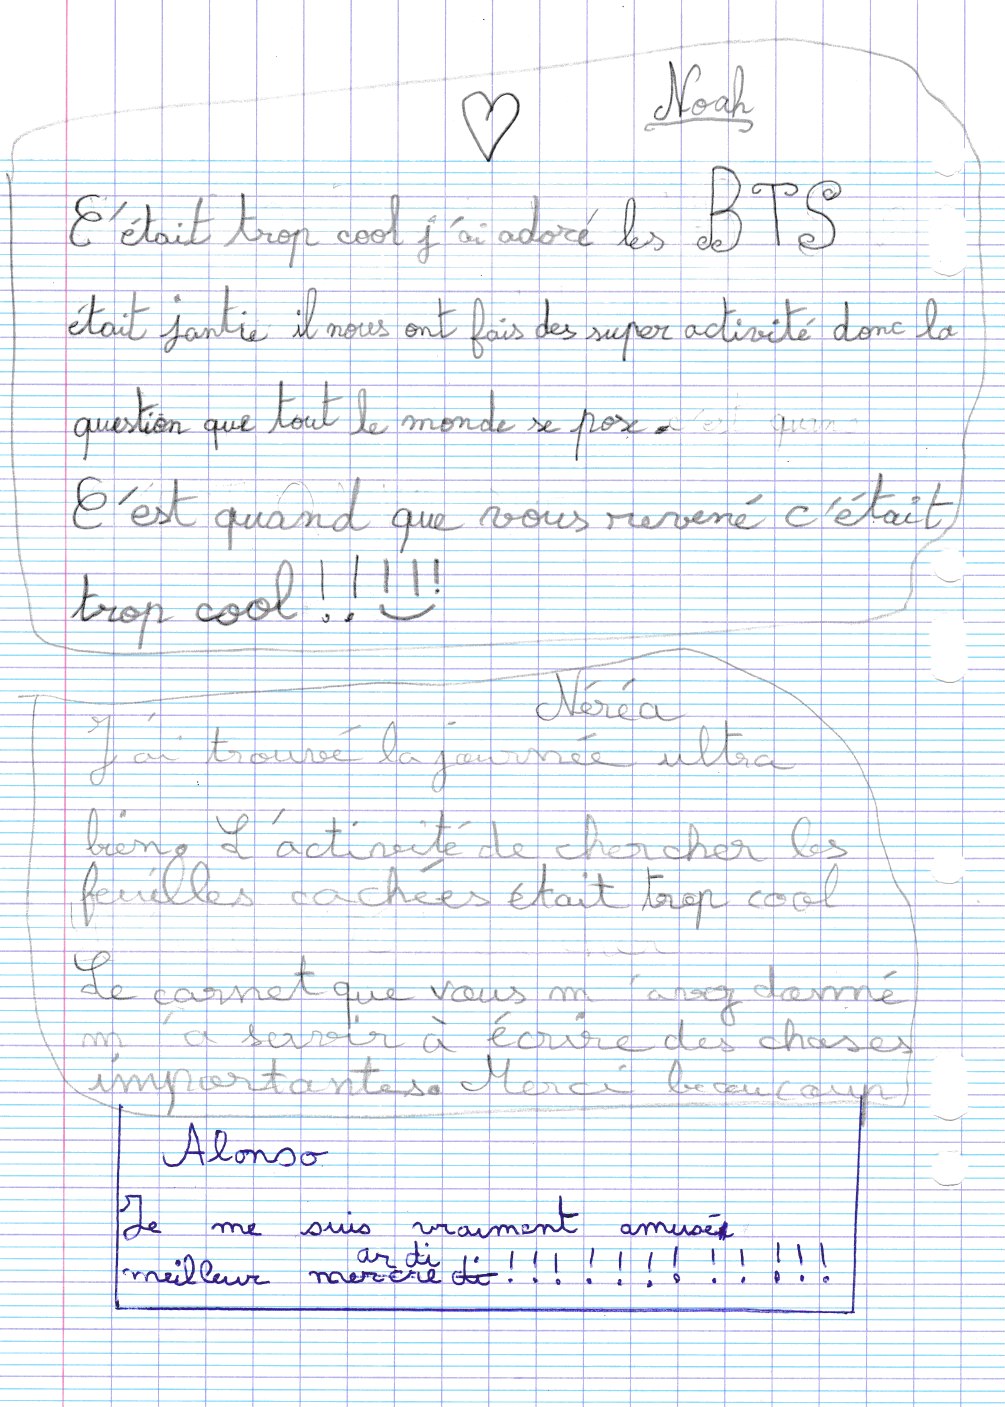 Noah
C'était trop cool j'ai adoré les BTS
était jantie il nous ont fais des super activité donc la
question que tout le monde se pose. c'est quan
C'est quand que vous revené c'était
trop cool !!!!!
Néréa
J'ai trouvé la journée ultra
bien. L'activité de chercher les
feuilles cachées était trop cool
Le carnet que vous m'avez donné
m'a servir à écrire des choses
importantes. Merci beaucoup
Alonso
Je me suis vraiment amusé
ar di
meilleur mercredi !!!!!!!!!!!!